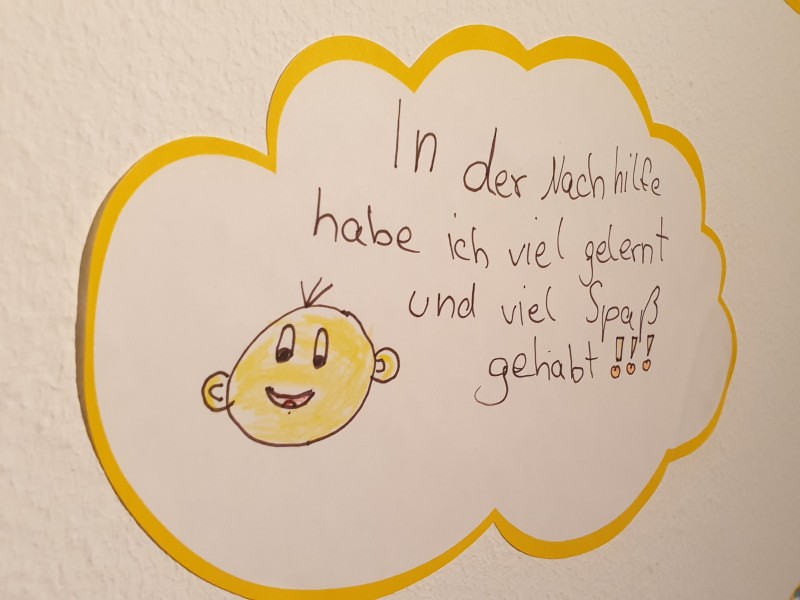 In der Nachhilfe
habe ich viel gelernt
und viel Spaß
gehabt !!!